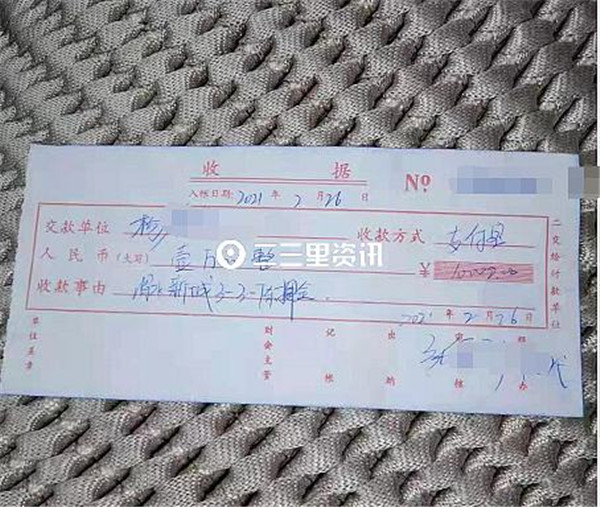 收 据
No
入帐日期: 2021 年 2 月 26 日
交款单位 收款方式 支付宝
人民币(大写) 壹万 整 ¥ 10000.00
收款事由 新城3-3- 押金.
2021 年 2 月 26 日
二交给付款单位
单位盖章 财会主管 记帐 出纳 审核 经办
二三里资讯